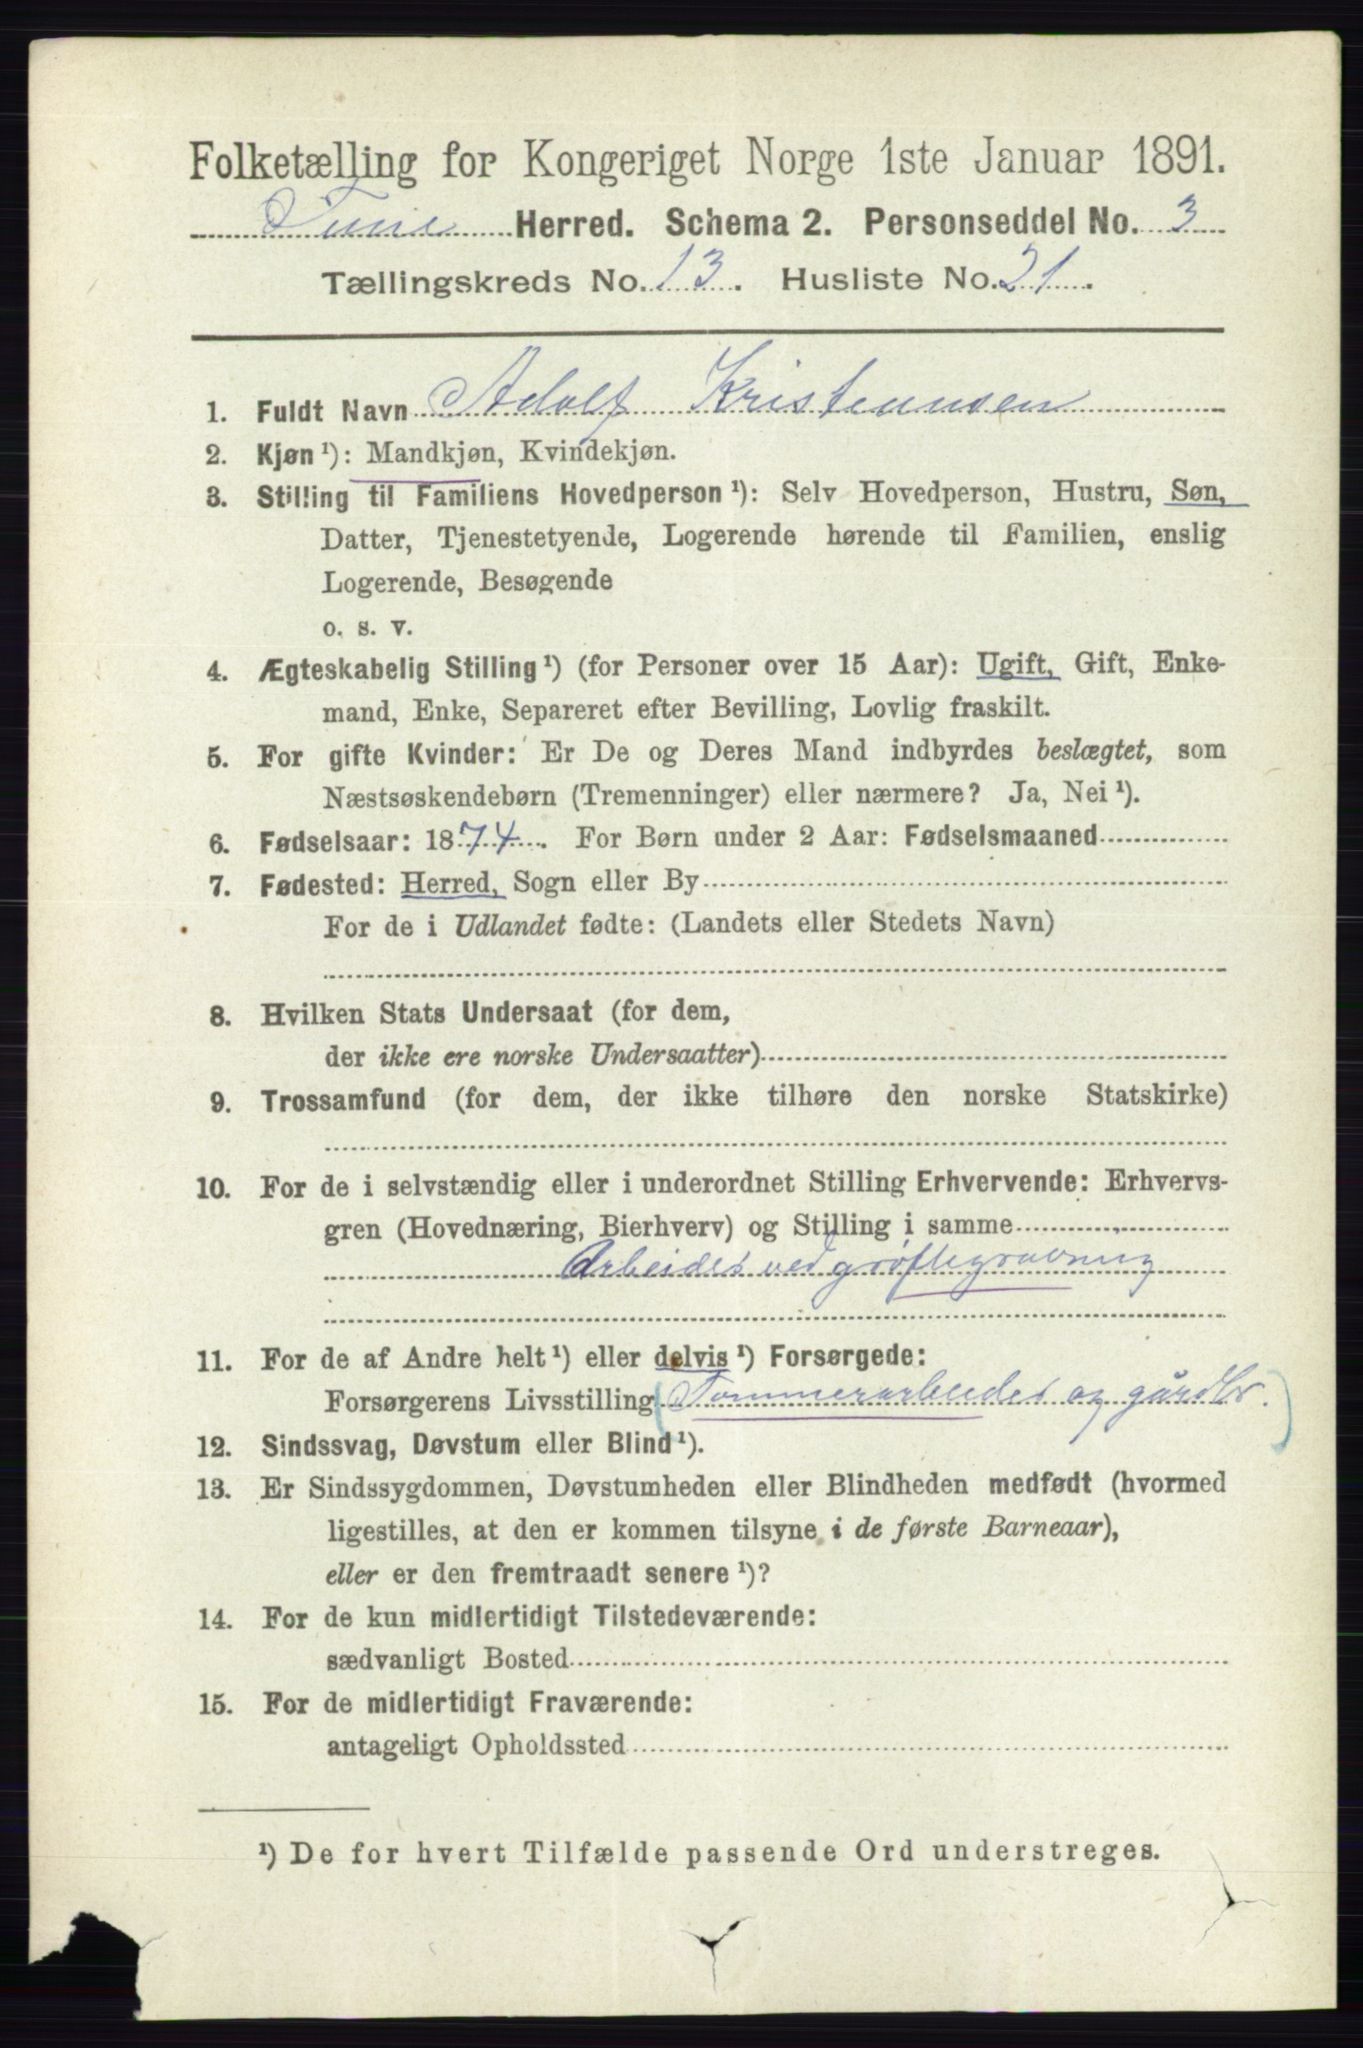 Folketælling for Kongeriget Norge 1ste Januar 1891.
Tune Herred. Schema 2. Personseddel No. 3
Tællingskreds No. 13. Husliste No. 21.
1. Fuldt Navn Adolf Kristiansen
2. Kjøn¹): Mandkjøn, Kvindekjøn.
3. Stilling til Familiens Hovedperson¹): Selv Hovedperson, Hustru, Søn,
Datter, Tjenestetyende, Logerende hørende til Familien, enslig
Logerende, Besøgende
o. s. v.
4. Ægteskabelig Stilling¹) (for Personer over 15 Aar): Ugift, Gift, Enke-
mand, Enke, Separeret efter Bevilling, Lovlig fraskilt.
5. For gifte Kvinder: Er De og Deres Mand indbyrdes beslægtet, som
Næstsøskendebørn (Tremenninger) eller nærmere? Ja, Nei¹).
6. Fødselsaar: 1874. For Børn under 2 Aar: Fødselsmaaned
7. Fødested: Herred, Sogn eller By
For de i Udlandet fødte: (Landets eller Stedets Navn)
8. Hvilken Stats Undersaat (for dem,
der ikke ere norske Undersaatter)
9. Trossamfund (for dem, der ikke tilhøre den norske Statskirke)
10. For de i selvstændig eller i underordnet Stilling Erhvervende: Erhvervs-
gren (Hovednæring, Bierhverv) og Stilling i samme
Arbeider ved grøftegravning
11. For de af Andre helt¹) eller delvis¹) Forsørgede:
Forsørgerens Livsstilling (Tømmerarbeider og gårdbr.)
12. Sindssvag, Døvstum eller Blind¹).
13. Er Sindssygdommen, Døvstumheden eller Blindheden medfødt (hvormed
ligestilles, at den er kommen tilsyne i de første Barneaar),
eller er den fremtraadt senere¹)?
14. For de kun midlertidigt Tilstedeværende:
sædvanligt Bosted
15. For de midlertidigt Fraværende:
antageligt Opholdssted
¹) De for hvert Tilfælde passende Ord understreges.